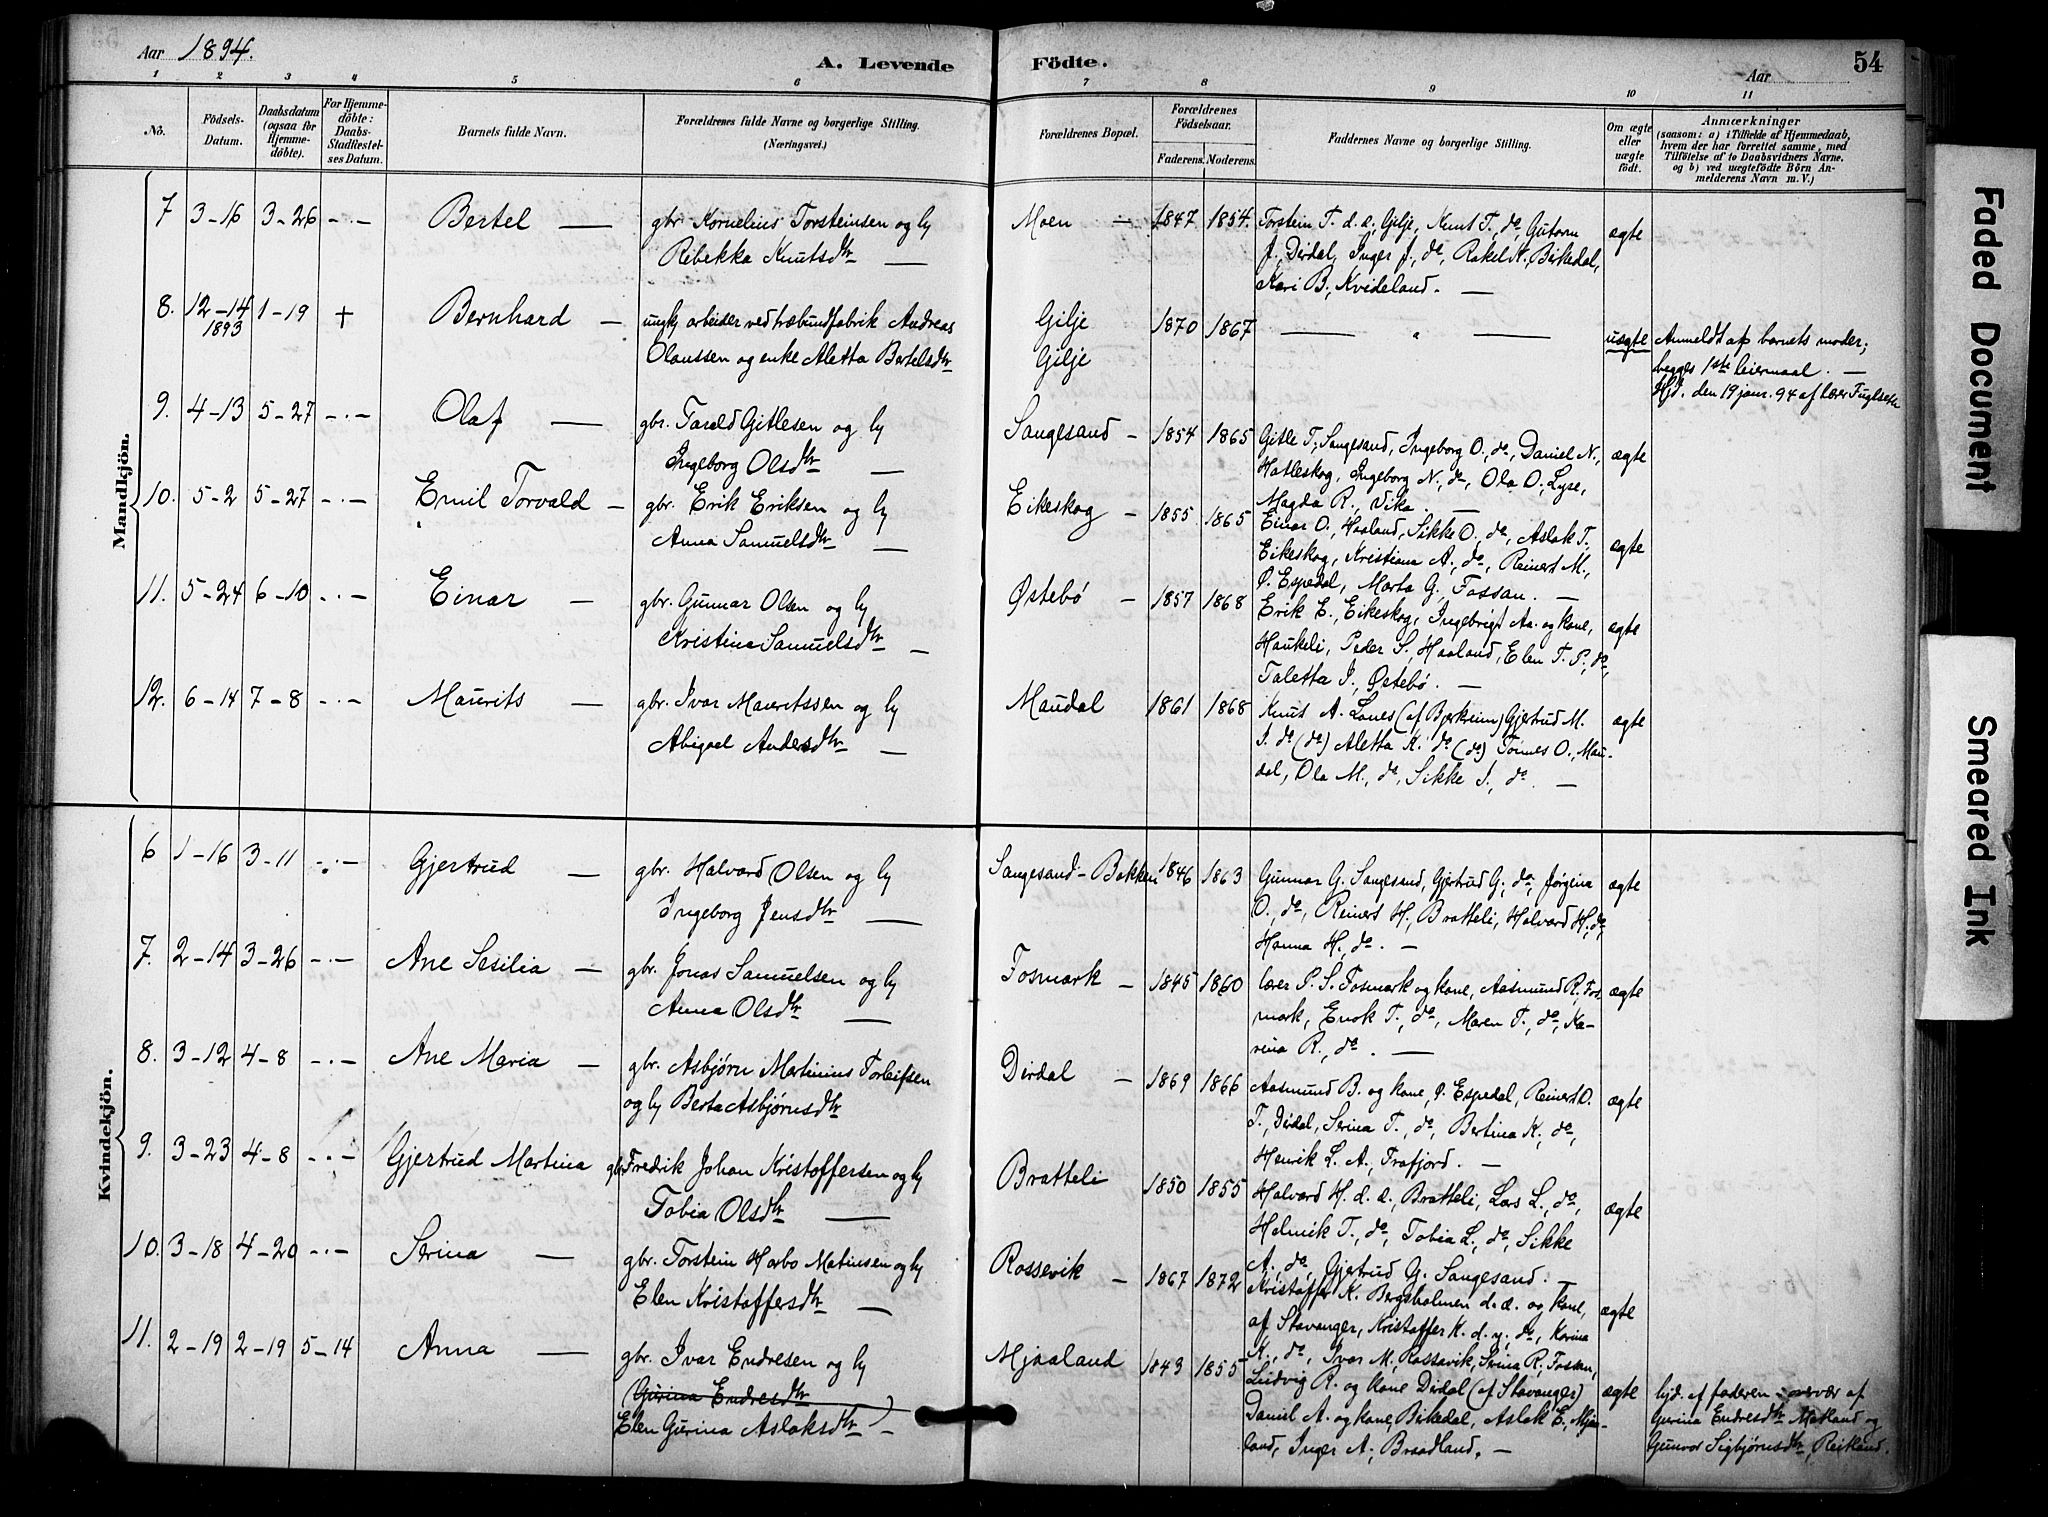 Aar 1894.
A. Levende
Födte.
Aar
54
1 2 3 4 5 6 7 8 9 10 11
No.
Födsels-Datum.
Daabsdatum (ogsaa for Hjemme-döbte).
For Hjemme-döbte: Daabs-Stadfæstel-ses Datum.
Barnets fulde Navn.
Forældrenes fulde Navne og borgerlige Stilling.
(Næringsvei.)
Forældrenes Bopæl.
Forældrenes Födselsaar.
Faderens. Moderens.
Faddernes Navne og borgerlige Stilling.
Om ægte eller uægte födt.
Anmærkninger
(saasom: a) i Tilfælde af Hjemmedaab,
hvem der har forrettet samme, med
Tilföielse af to Daabsvidners Navne.
og b) ved uægtefödte Börn An-
melderens Navn m. V.)
Mandkjön.
7 3-16 3-26 -.- Bertel — gbr. Kornelius Torsteinsen og hu Moen — 1847 1854. Torstein T. d. e. Gilje, Knut T., do, Gutorm ægte
Rebekka Knutsdtr — J. Dirdal, Inger J., do, Rakel K. Birkedal,
Kari B., Kvideland. —
8. 12-14 1-19 + Bernhard — ungk. arbeider ved træbundfabrik Andreas Gilje 1870 1867 — " — uægte Anmeldt af barnets moder;
1893 Olaussen og enke Aletta Bertelsdtr Gilje begges 1ste leiermaal. —
Hjd. den 19 janr. 94 af lærer Fuglseth
9. 4-13 5-27 -.- Olaf — gbr. Tarald Gitlesen og hu Sangesand - 1854 1865 Gitle T., Sangesand, Ingeborg O., do, Daniel N., ægte
Ingeborg Olsdtr — Hatleskog, Ingeborg N., do, Ola O., Lyse,
Magda R., Vika. —
10. 5-2 5-27 -.- Emil Torvald - gbr. Erik Eriksen og hu Eikeskog - 1855 1865 Einar O., Haaland, Sikke O., do, Aslak T., ægte
Anna Samuelsdtr — Eikeskog, Kristiana A., do, Reinert M.,
Ø. Espedal, Marta G., Fossan. —
11. 5-24 6-10 -.- Einar — gbr. Gunnar Olsen og hu Østebö - 1857 1868 Erik E., Eikeskog, Ingebrigt Aa. og kone, ægte
Kristina Samuelsdtr — Haukeli, Peder S., Haaland, Elen T. P., do,
Taletta I., Østebö. —
12. 6-14 7-8 -.- Maurits — gbr. Ivar Mauritssen og hu Maudal 1861 1868 Knut A. Lanes (af Bjerkreim) Gjertrud M. ægte
Abigael Andersdtr — I. do (do) Aletta K. do (do) Tönnes O., Mau-
dal, Ola M., do, Sikke I., do. —
Kvindekjön.
6 1-16 3-11 -.- Gjertrud — gbr. Halvard Olsen og hu Sangesand-Bakken 1846 1863 Gunnar G. Sangesand, Gjertrud G., do, Jörgina ægte
Ingeborg Jensdtr — O., do, Reinert H., Bratteli, Halvard H., do,
Hanna H., do. —
7. 2-14 3-26 -.- Ane Sesilia — gbr. Jonas Samuelsen og hu Fosmark - 1845 1860 lærer P. S. Fosmark og kone, Aasmund R., Fos- ægte
Anna Olsdtr — mark, Enok T., do, Maren T., do, Ka-
rina R., do. —
8. 3-12 4-8 -.- Ane Maria — gbr. Asbjörn Martinius Torleifsen Dirdal — 1869 1866 Aasmund B. og kone, I. Espedal, Reinert O. ægte
og hu Berta Asbjörnsdtr T., Dirdal, Serina T., do, Bertina K., do,
Henrik L. A., Frafjord. —
9. 3-23 4-8 -.- Gjertrud Martina gbr. Fredrik Johan Kristoffersen og hu Bratteli 1850 1855 Halvard H. d. e. Bratteli, Lars L., do, ægte
Tobia Olsdtr — Helmik T., do, Tobia L., do, Sikke
A., do, Gjertrud G. Sangesand.
10. 3-18 4-20 -.- Serina — gbr. Torstein Harbo Matiasen og hu Rossevik - 1867 1872 Kristoffer K. Bergsholmen d. e. og kone, ægte
Elen Kristoffersdtr — af Stavanger, Kristoffer K. d. y. do, Karina
K., do, Ivar M., Rossavik, Serina R., Fossan,
11. 2-19 2-19 5-14 Anna — gbr. Ivar Endresen og hu Mjaaland 1843 1855 Ludvig R. og kone Dirdal (af Stavanger) ægte hjd. af faderen i overvær af
(Gurina Endresdtr Daniel A. og kone, Birkedal, Aslak E., Mjaa- Gurina Endresdtr Matland og
Elen Gurina Aslaksdtr) - land, Inger A., Braadland. — Gunvor Sigbjörnsdtr, Reikland.
Faded Document
Smeared Ink